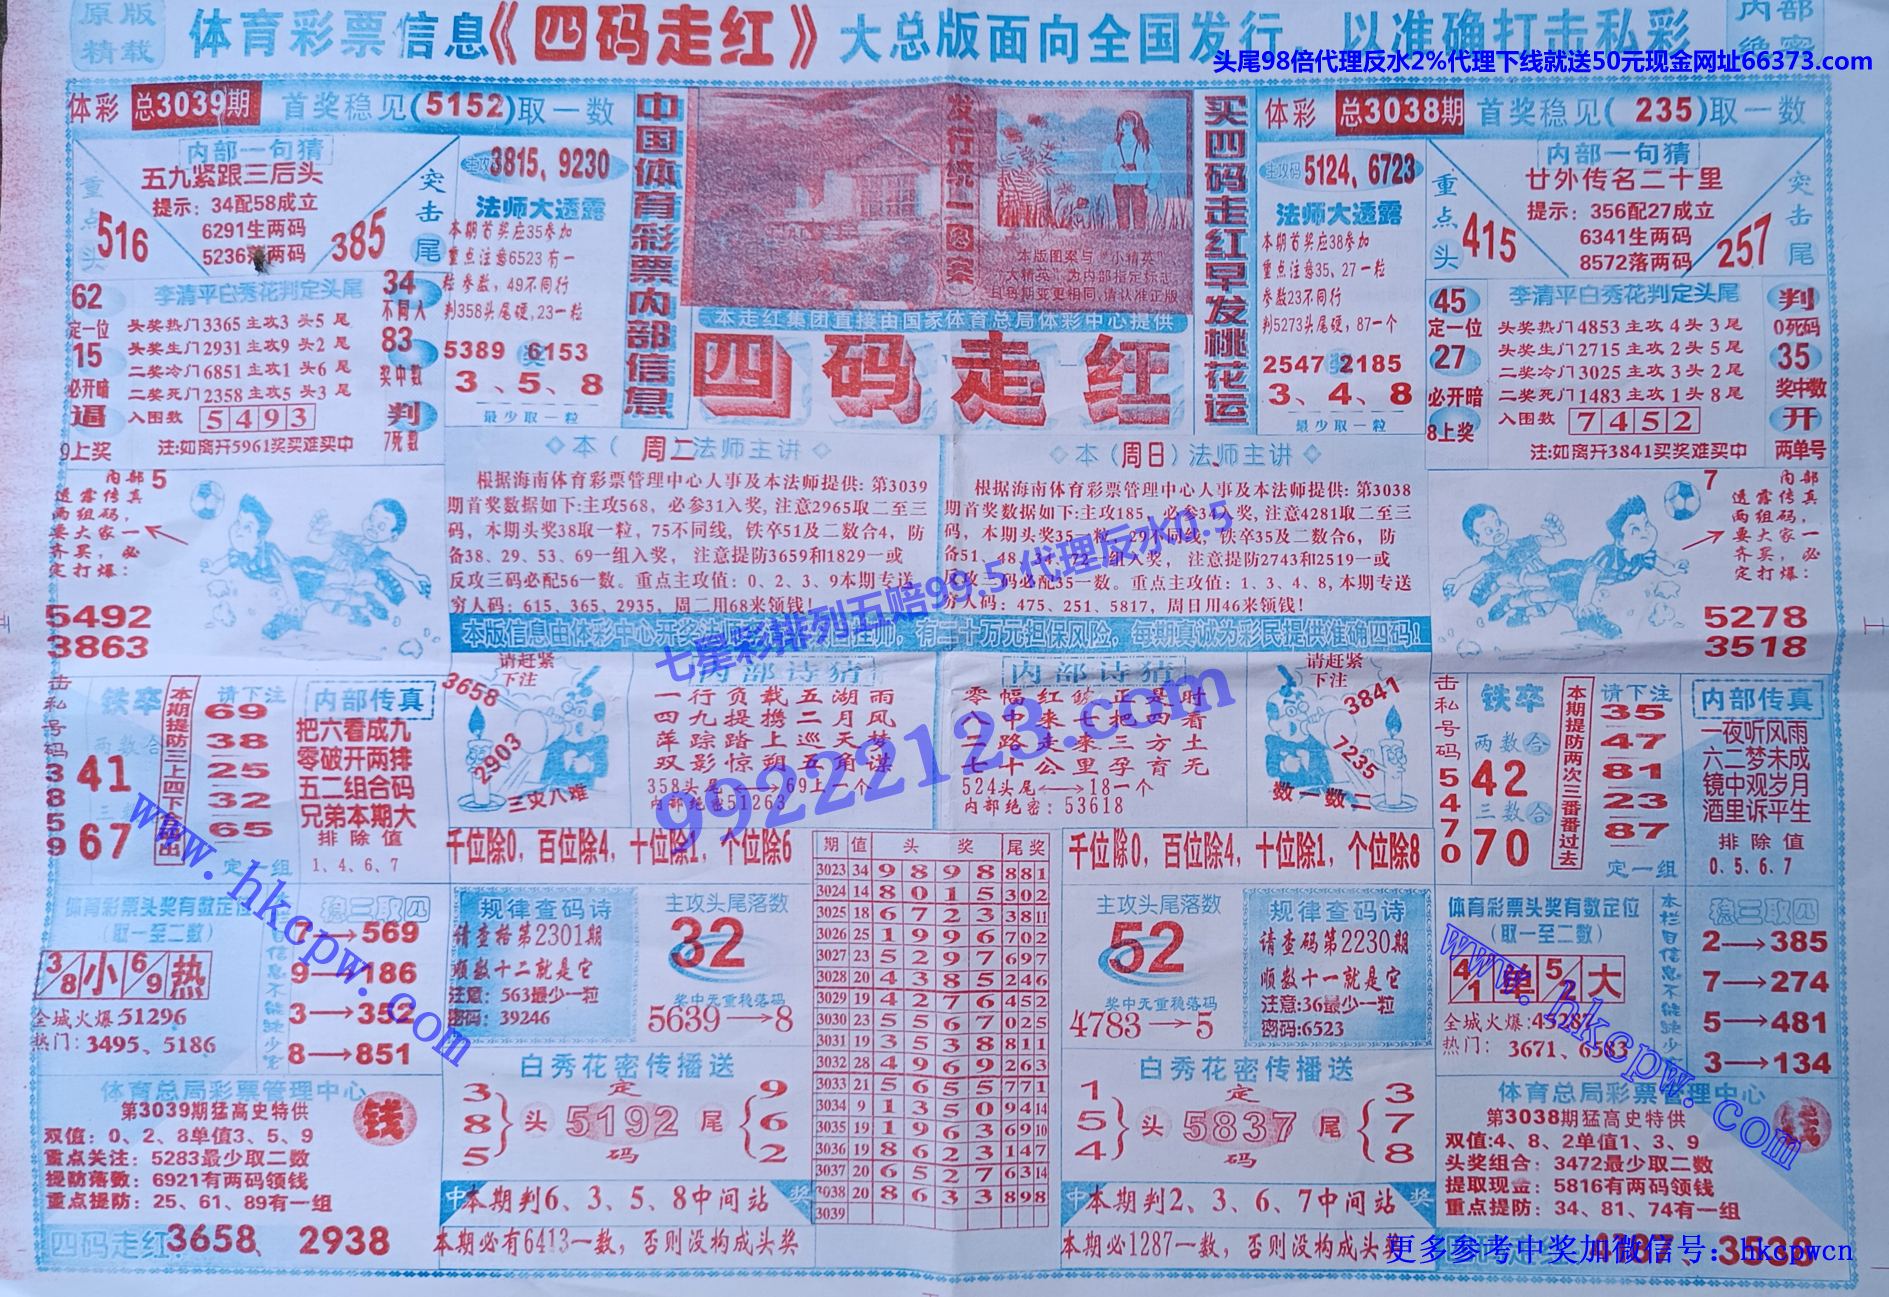 原版
精载
体育彩票信息《四码走红》大总版面向全国发行，以准确打击私彩
内部
绝密
头尾98倍代理反水2%代理下线就送50元现金网址66373.com
体彩 总3039期 首奖稳见(5152)取一数
内部一句猜
五九紧跟三后头
提示：34配58成立
6291生两码
5236落两码
重点头
516
突击尾
385
62
定一位
15
必开暗
逼
9上奖
李清平白秀花判定头尾
头奖热门3365主攻3头5尾
头奖生门2931主攻9头2尾
二奖冷门6851主攻1头6尾
二奖死门2358主攻5头3尾
入围数 5493
注:如离开5961奖买难买中
34
不同人
83
奖中数
判
7死数
主攻码3815、9230
法师大透露
本期首奖应35参加
重点注意6523有一
粒参数，49不同行
判358头尾硬,23一粒
5389 奖 6153
3、5、8
最少取一粒
中国体育彩票内部信息
发行统一图案
本版图案与“小精英”
“大精英”为内部指定标志
且每期变更相同,请认准正版
本走红集团直接由国家体育总局体彩中心提供
四码走红
买四码走红早发桃花运
体彩 总3038期 首奖稳见(235)取一数
主攻码5124、6723
法师大透露
本期首奖应38参加
重点注意35、27一粒
参数23不同行
判5273头尾硬，87一个
2547 奖 2185
3、4、8
最少取一粒
内部一句猜
廿外传名二十里
提示：356配27成立
6341生两码
8572落两码
重点头
415
突击尾
257
45
定一位
27
必开暗
8上奖
李清平白秀花判定头尾
头奖热门4853主攻4头3尾
头奖生门2715主攻2头5尾
二奖冷门3025主攻3头2尾
二奖死门1483主攻1头8尾
入围数 7452
注:如离开3841买奖难买中
判
0死码
35
奖中数
开
两单号
内部5
透露传真
两组码，
要大家一
齐买，必
定打爆：
5492
3863
◇本（周二）法师主讲◇
根据海南体育彩票管理中心人事及本法师提供：第3039
期首奖数据如下:主攻568，必参31入奖，注意2965取二至三
码，本期头奖38取一粒，75不同线，铁卒51及二数合4，防
备38、29、53、69一组入奖， 注意提防3659和1829一或
反攻三码必配56一数。重点主攻值：0、2、3、9本期专送
穷人码：615、365、2935，周二用68来领钱！
◇本（周日）法师主讲◇
根据海南体育彩票管理中心人事及本法师提供：第3038
期首奖数据如下:主攻185，必参34入奖,注意4281取二至三
码，本期头奖35一粒，29不同线，铁卒35及二数合6， 防
备51、48、34、72一组入奖， 注意提防2743和2519一或
反攻三码必配35一数。重点主攻值：1、3、4、8,本期专送
穷人码：475、251、5817，周日用46来领钱！
7内部
透露传真
两组码，
要大家一
齐买，必
定打爆：
5278
3518
七星彩排列五赔99.5 代理反水0.5
99222123.com
击私号码3859
铁卒
两数合
41
67
请下注
69
38
25
32
65
定一组
内部传真
把六看成九
零破开两排
五二组合码
兄弟本期大
排除值
1、4、6、7
请赶紧
下注
3658
2903
三灾八难
内部诗猜
一行负载五湖雨
四九提携二月风
萍踪踏上巡天梦
双影惊朔五角谋
358头尾⟷69上一个
内部绝密51263
内部诗猜
八中来七把四看
二路走来三方土
七十公里孕育无
524头尾⟷18一个
内部绝密：53618
请赶紧
下注
3841
7235
数一数二
击私号码5470
铁卒
两数合
42
三数合
70
本期提防两次三番番过去
请下注
35
47
81
23
87
定一组
内部传真
一夜听风雨
六二梦未成
镜中观岁月
酒里诉平生
排除值
0、5、6、7
千位除0，百位除4，十位除1，个位除6
千位除0，百位除4，十位除1，个位除8
期 值 头奖 尾奖
3023 34 9898 881
3024 14 8015 302
3025 18 6723 3811
3026 25 1996 702
3027 23 5297 697
3028 20 4385 246
3029 19 4276 452
3030 23 5567 025
3031 19 3538 811
3032 28 4969 263
3033 21 5655 771
3034 9 1350 9414
3035 19 1963 6910
3036 19 8623 147
3037 20 6527 6314
3038 20 8633 898
3039
体育彩票头奖有数定位
(取一至二数)
3/8小6/9热
全城火爆51296
热门：3495、5186
稳三取四
7→569
9→186
3→352
8→851
规律查码诗
请查格第2301期
顺数十二就是它
注意：563最少一粒
密码：39246
主攻头尾落数
32
奖中无重稳落码
5639→8
主攻头尾落数
52
奖中无重稳落码
4783→5
规律查码诗
请查码第2230期
顺数十一就是它
注意:36最少一粒
密码:6523
体育彩票头奖有数定位
(取一至二数)
4/1单5/2大
全城火爆:45287
热门：3671、6583
本栏目信息不能缺少它
稳三取四
2→385
7→274
5→481
3→134
体育总局彩票管理中心
第3039期猛高史特供
钱
双值：0、2、8单值3、5、9
重点关注：5283最少取二数
提防落数：6921有两码领钱
重点提防：25、61、89有一组
四码走红:3658、2938
白秀花密传播送
385}头 定5192码 尾{962
中本期判6、3、5、8中间站奖
本期必有6413一数，否则没构成头奖
白秀花密传播送
154}头 定5837码 尾{378
中本期判2、3、6、7中间站奖
本期必1287一数，否则没构成头奖
体育总局彩票管理中心
第3038期猛高史特供
钱
双值:4、8、2单值1、3、9
头奖组合：3472最少取二数
提取现金：5816有两码领钱
重点提防：34、81、74有一组
4187、3538
www.hkcpw.com
www.hkcpw.com
更多参考中奖加微信号：hkcpwcn